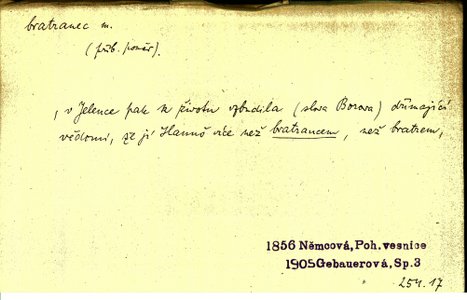 bratranec m.
(příb. poměr).
, v Jelence pak k životu vzbudila (slova Borova) dřímající
vědomí, že jí Hannoš více než bratrancem, než bratrem,
1856 Němcová, Poh. vesnice
1905 Gebauerová, Sp. 3
254.17